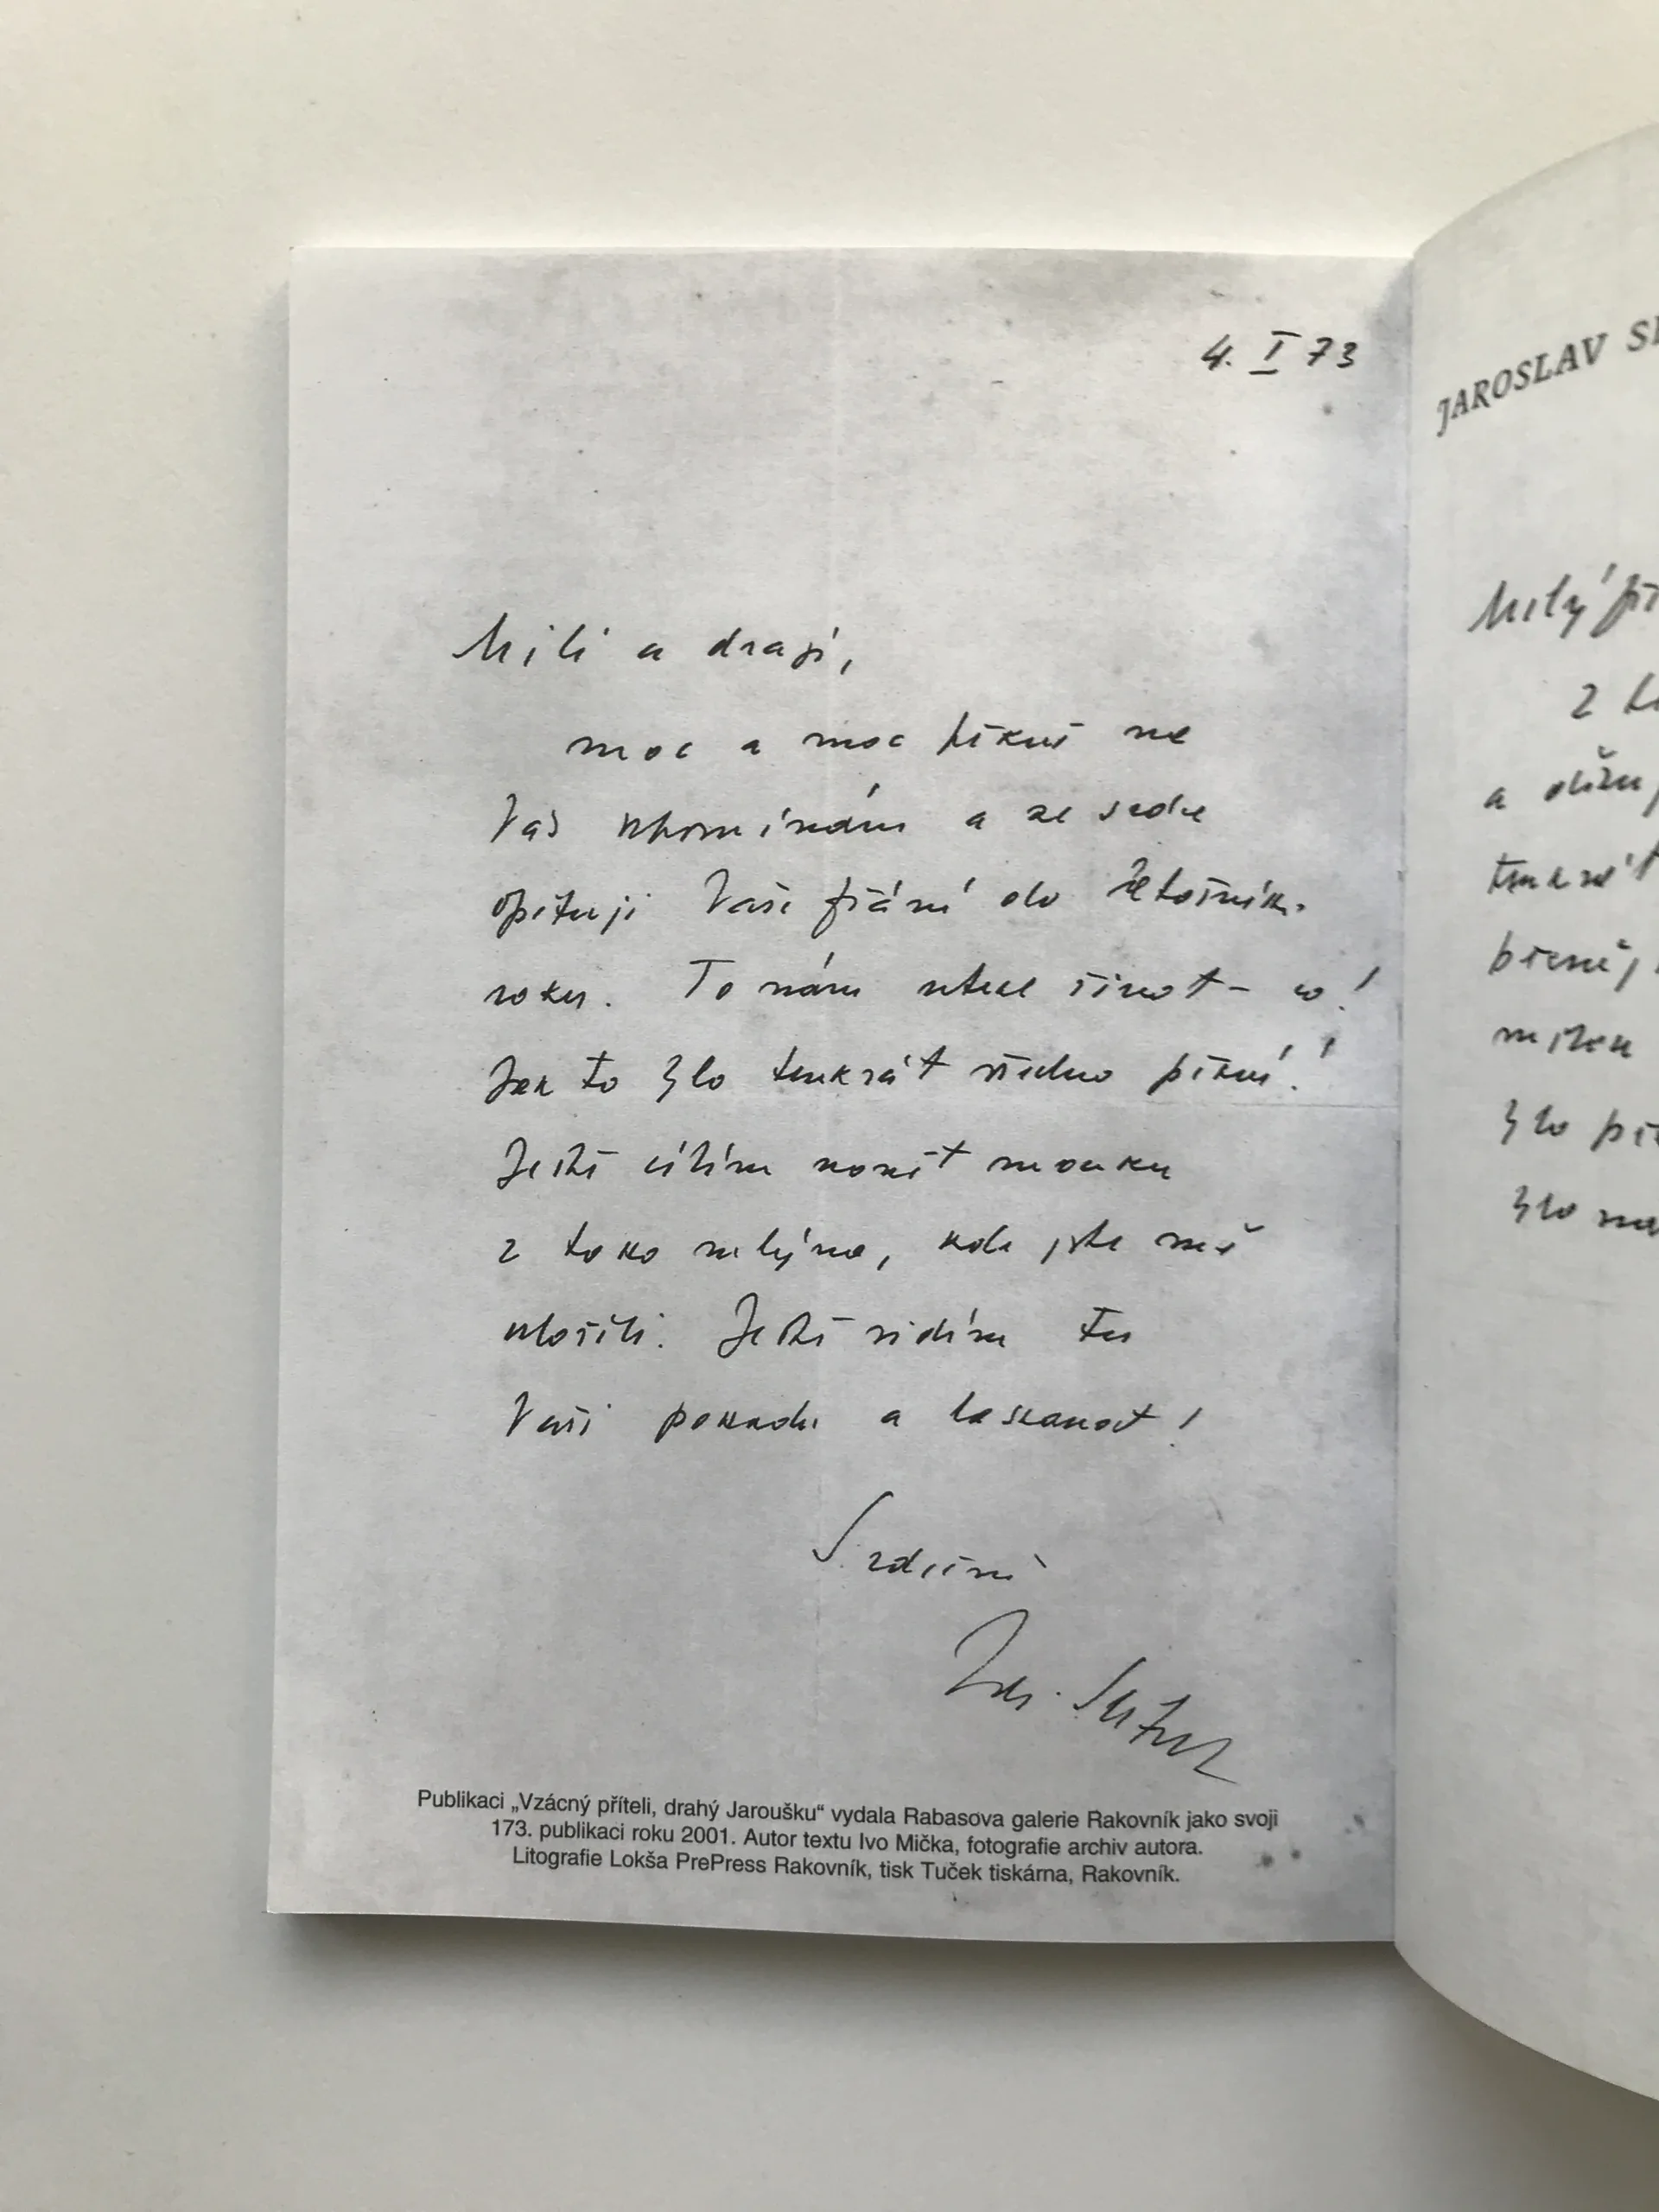 4. I 73
Milí a drazí,
moc a moc pěkně na
Vás vzpomínám a ze srdce
opětuji Vaše přání do letošního
roku. To nám utekl život – co!
Jak to bylo tenkrát všechno pěkné!
Ještě cítím vonět mouku
z toho mlýna, kde jste mě
uložili. Ještě vidím tu
Vaši pohodu a laskavost!
Srdečně
Publikaci „Vzácný příteli, drahý Jaroušku“ vydala Rabasova galerie Rakovník jako svoji
173. publikaci roku 2001. Autor textu Ivo Mička, fotografie archiv autora.
Litografie Lokša PrePress Rakovník, tisk Tuček tiskárna, Rakovník.
JAROSLAV
Milý
z
a
tenkrát
mlýnu
bylo
bylo